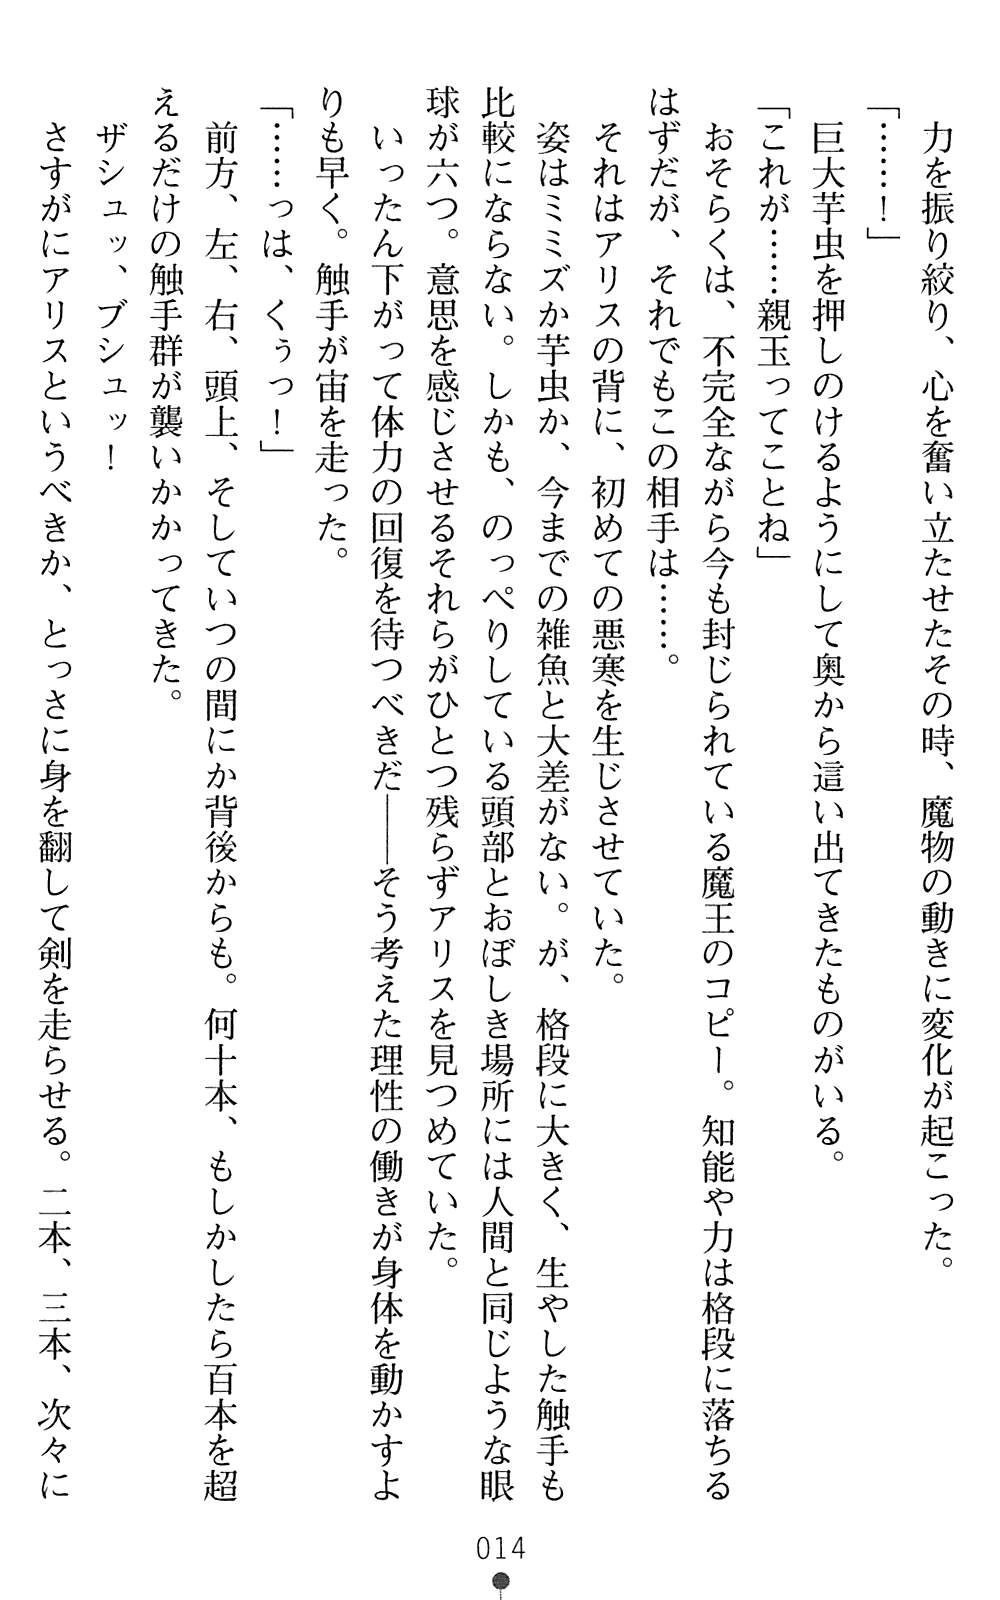 力を振り絞り、心を奮い立たせたその時、魔物の動きに変化が起こった。
「……！」
巨大芋虫を押しのけるようにして奥から這い出てきたものがいる。
「これが……親玉ってことね」
おそらくは、不完全ながら今も封じられている魔王のコピー。知能や力は格段に落ちる
はずだが、それでもこの相手は……。
それはアリスの背に、初めての悪寒を生じさせていた。
姿はミミズか芋虫か、今までの雑魚と大差がない。が、格段に大きく、生やした触手も
比較にならない。しかも、のっぺりしている頭部とおぼしき場所には人間と同じような眼
球が六つ。意思を感じさせるそれらがひとつ残らずアリスを見つめていた。
いったん下がって体力の回復を待つべきだ――そう考えた理性の働きが身体を動かすよ
りも早く。触手が宙を走った。
「……っは、くぅっ！」
前方、左、右、頭上、そしていつの間にか背後からも。何十本、もしかしたら百本を超
えるだけの触手群が襲いかかってきた。
ザシュッ、ブシュッ！
さすがにアリスというべきか、とっさに身を翻して剣を走らせる。二本、三本、次々に
014